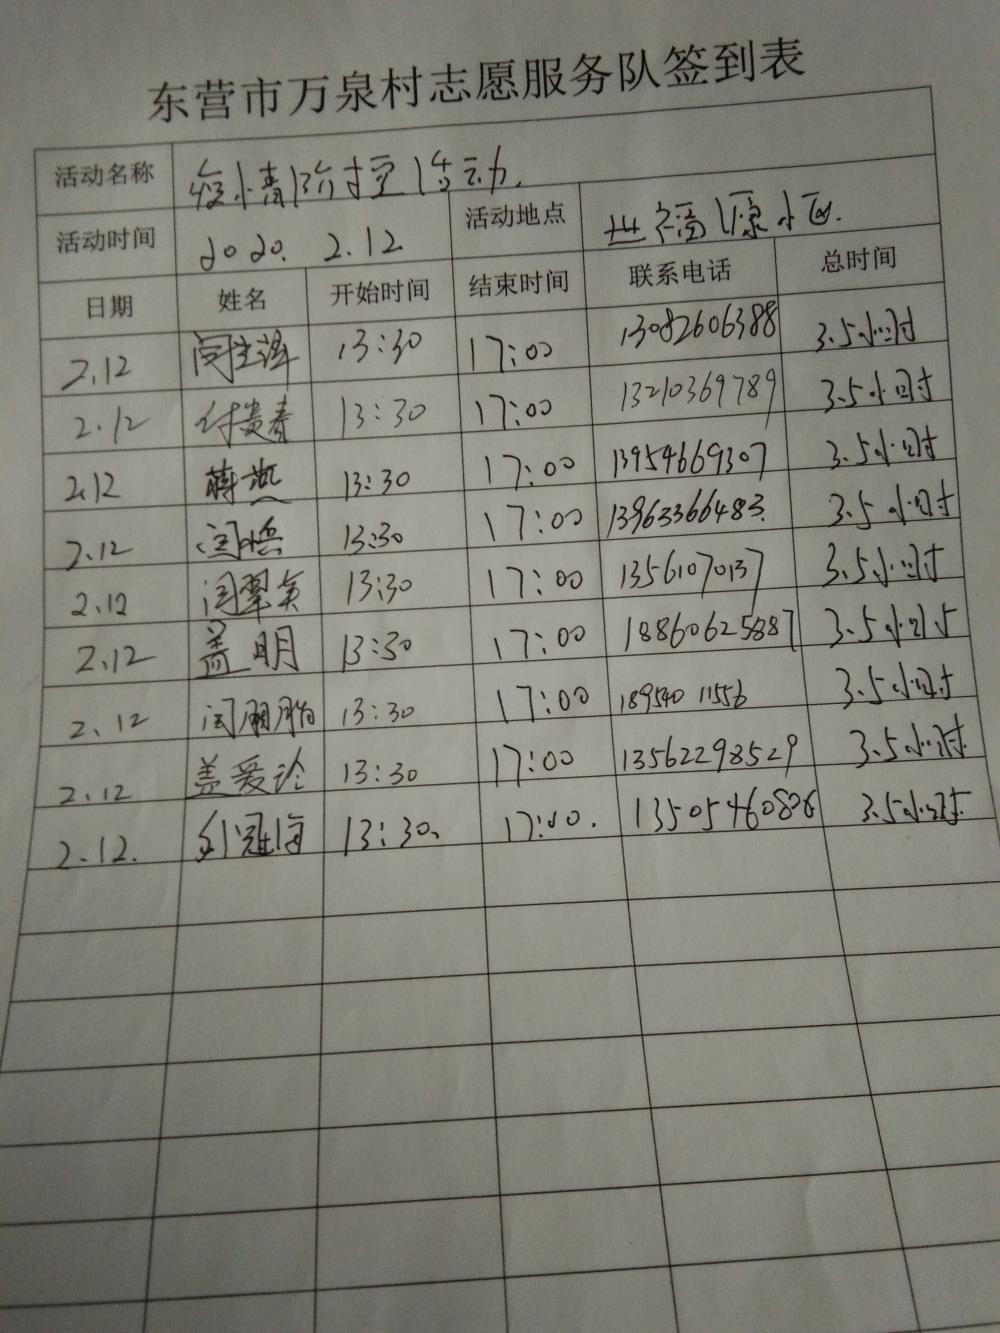 东营市万泉村志愿服务队签到表
活动名称 疫情防控活动.
活动时间 2020. 2.12 活动地点 世福源小区.
日期 姓名 开始时间 结束时间 联系电话 总时间
2.12 13:30 17:00 13082606388 3.5小时
2.12 付贵春 13:30 17:00 13210369789 3.5小时
2.12 蒋燕 13:30 17:00 13954669307 3.5小时
2.12 13:30 17:00 13963366483. 3.5小时
2.12 闫翠英 13:30 17:00 13561070137 3.5小时
2.12 盖明 13:30 17:00 18860625887 3.5小时
2.12 13:30 17:00 189540 11556 3.5小时
2.12 盖爱论 13:30 17:00 13562298529 3.5小时
2.12. 13:30. 17:00. 13505460806 3.5小时.